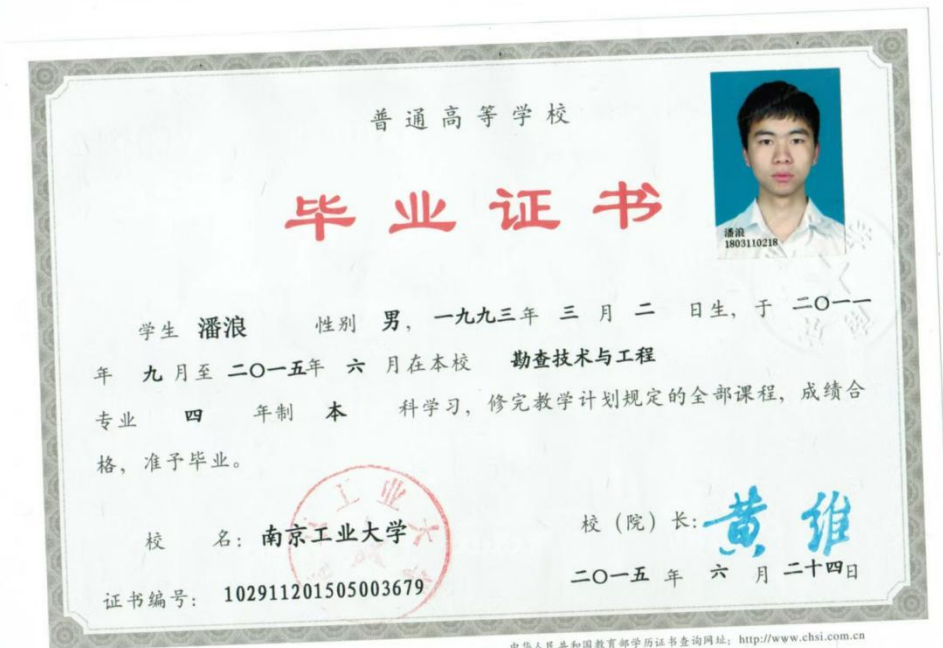 普通高等学校
毕业证书
潘浪
1803110218
学生 潘浪 性别 男，一九九三年 三 月 二 日生，于 二〇一一
年 九 月至 二〇一五年 六 月在本校 勘查技术与工程
专业 四 年制 本 科学习，修完教学计划规定的全部课程，成绩合
格，准予毕业。
校 名：南京工业大学
校（院）长：黄维
证书编号：102911201505003679
二〇一五 年 六 月 二十四日
中华人民共和国教育部学历证书查询网址：http://www.chsi.com.cn